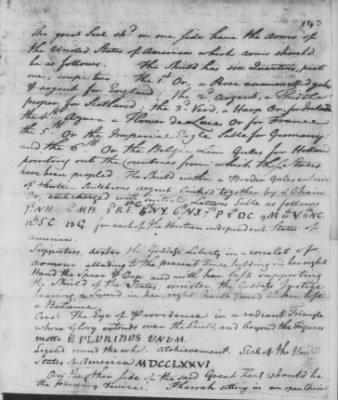 143
The great Seal shd. on one side have the Arms of
the United States of America which arms should
be as follows. The Shield has six Quarters, parti
one, coupé two. The 1st Or, a Rose enammelled gules
& argent for England. The 2d Argent, a Thistle
proper, for Scotland; the 3d. Verd, a Harp Or, for Ireland
the 4th Azure a Flower de Luce Or for France
the 5th Or the Imperial Eagle Sable for Germany;
and the 6th Or the Belgic Lion Gules for Holland
pointing out the Countries from which the States
have been peopled. The Shield within a Border Gules
of thirteen Scutcheons argent linked together by a Chain
Or, each charged with initial Letters Sable as follows
1st N.H. 2d M.B 3d R.I. 5th N.Y 6th N.J. 7th P 8th D.C. 9 M 10 V 11th N.C.
12th S.C. 13 G for each of the thirteen independent States of
america.
Supporters, dexter the Goddess Liberty in a corselet of
armour alluding to the present Times, holding in her right
Hand the Spear & Cap and with her left supporting
the Shield of the States; sinister, the Goddess Justice
bearing a Sword in her right hand and in her left
a Balance.
Crest The Eye of Providence in a radiant Triangle
whose Glory extends over the Shield and beyond the Figures
motto E PLURIBUS UNUM.
Legend round the whole Atchievement. Seal of the United
States of America MDCCLXXVI.
On the other side of the said Great Seal should be
the following Device. Pharoah sitting in an open Chariot